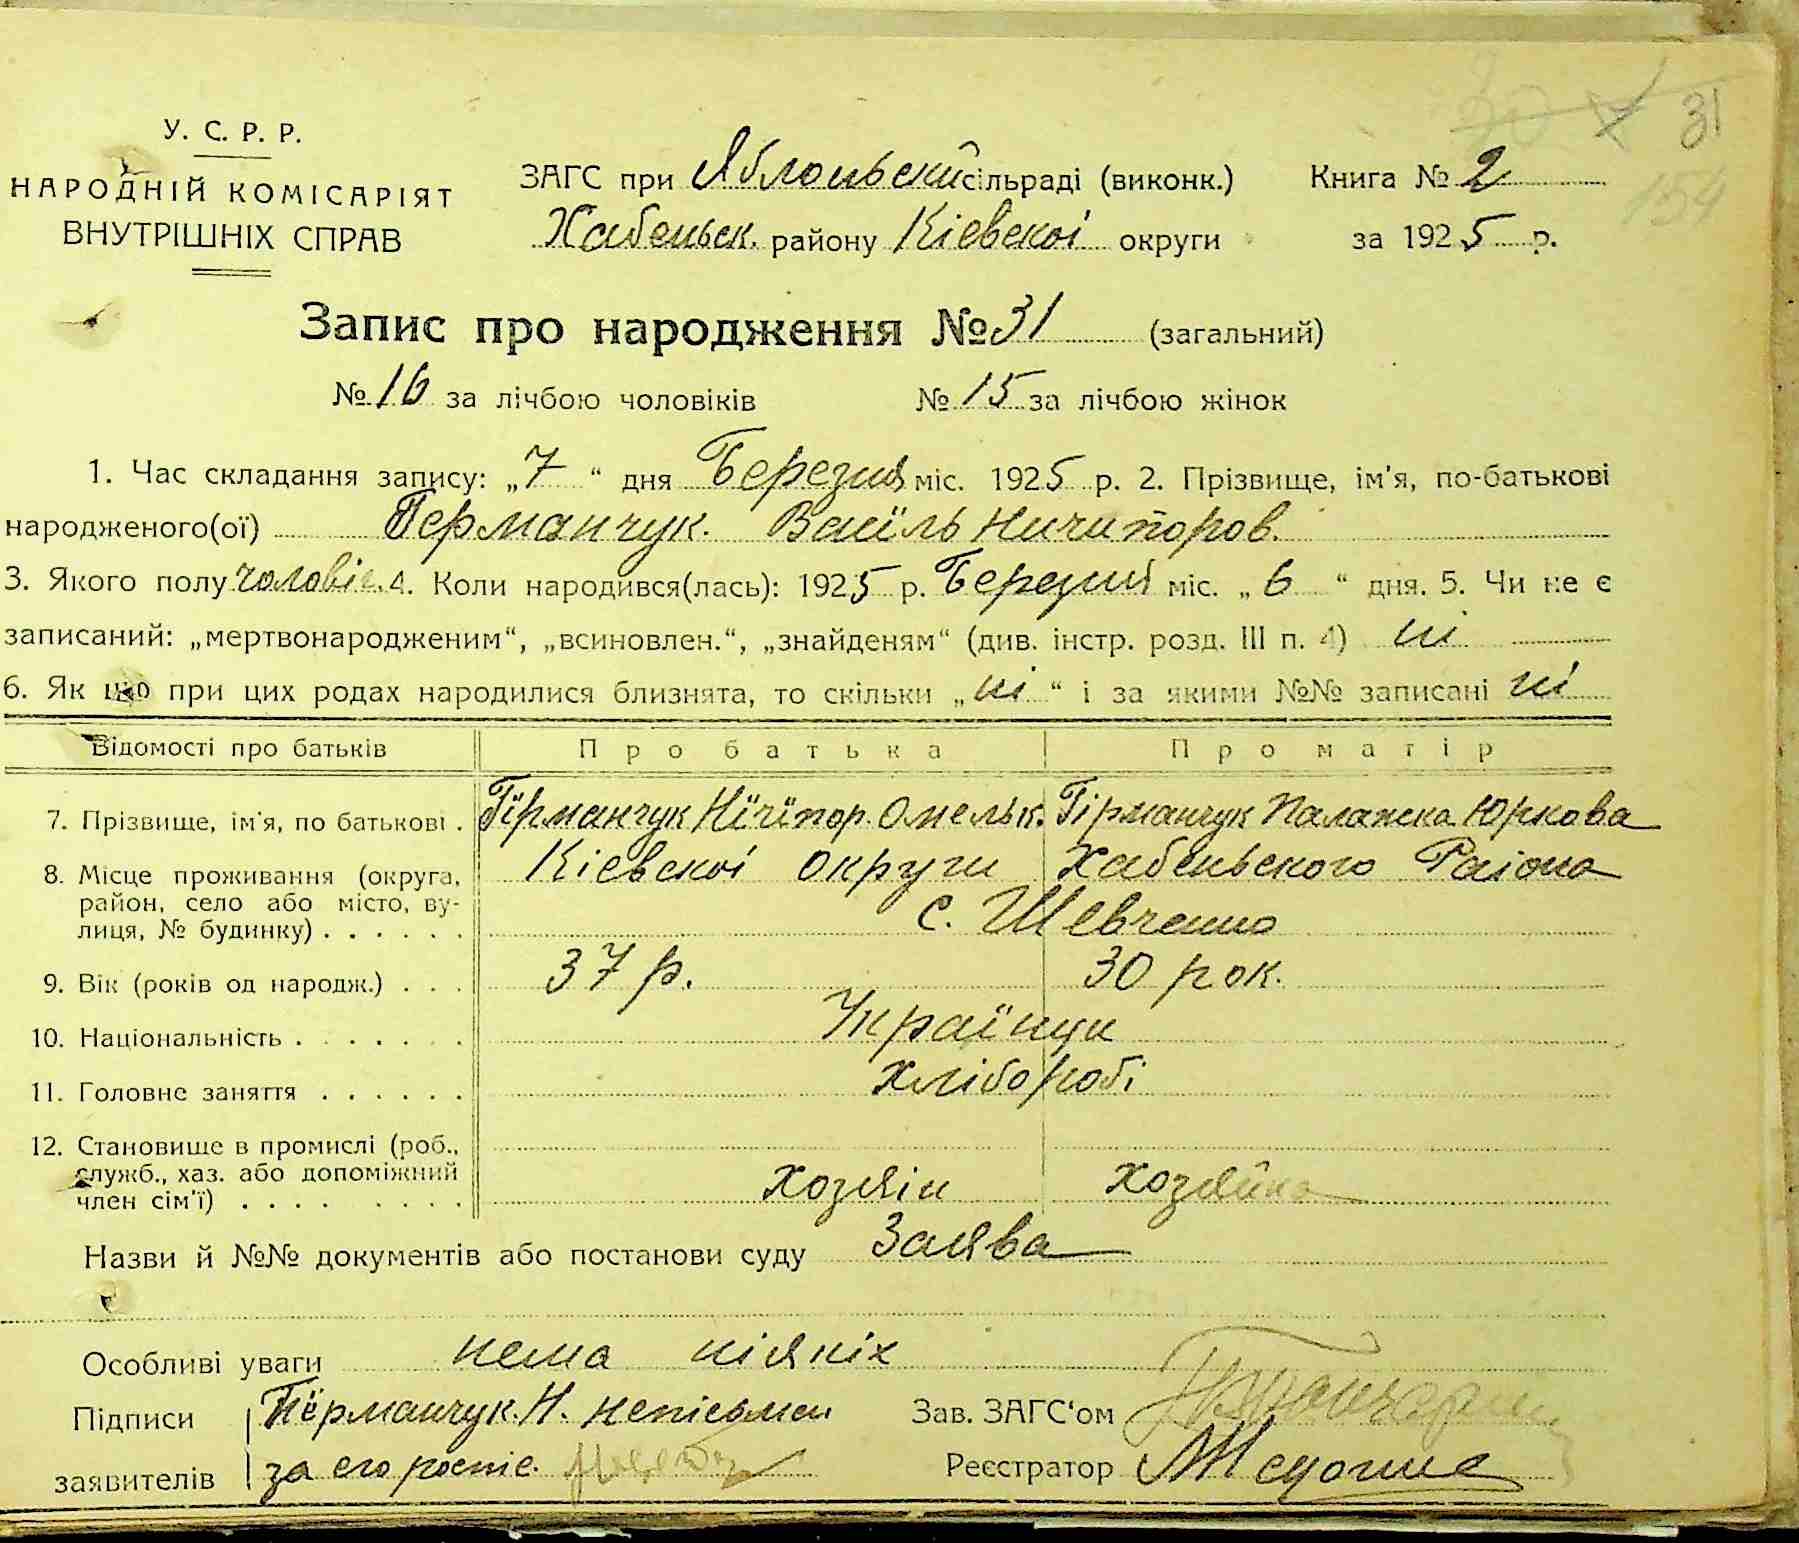 31
154
У. С. Р. Р.
НАРОДНІЙ КОМІСАРІЯТ
ВНУТРІШНІХ СПРАВ
ЗАГС при Яблоньскій сільраді (виконк.) Книга № 2
Хабеньск. району Кіевскоі округи за 1925 р.
Запис про народження № 31 (загальний)
№ 16 за лічбою чоловіків № 15 за лічбою жінок
1. Час складання запису: „7“ дня Березня міс. 1925 р. 2. Прізвище, ім'я, по-батькові
народженого(ої) Германчук. Васіль Ничипоров.
3. Якого полу чоловіч. 4. Коли народився(лась): 1925 р. Березня міс. „6“ дня. 5. Чи не є
записаний: „мертвонародженим“, „всиновлен.“, „знайденям“ (див. інстр. розд. III п. 4) ні
6. Як що при цих родах народилися близнята, то скільки „ні“ і за якими №№ записані ні
Відомості про батьків Про батька Про матір
7. Прізвище, ім'я, по батькові . Гірманчук Нічіпор. Омельк. Гірманчук Палажка Юркова
8. Місце проживання (округа, Кіевскоі округи Хабеньского Раіона
район, село або місто, ву- с. Шевченко
лиця, № будинку) . . . . . .
9. Вік (років од народж.) . . . 37 р. 30 рок.
10. Національність . . . . . . . Українци
11. Головне заняття . . . . . . Хлібороби
12. Становище в промислі (роб.,
служб., хаз. або допоміжний Хозяін Хозяйка
член сім'ї) . . . . . . . .
Назви й №№ документів або постанови суду Заява
Особливі уваги нема ніякіх
Підписи Германчук. Н. непісьмен Зав. ЗАГС'ом
заявителів за его роспіс. Реєстратор